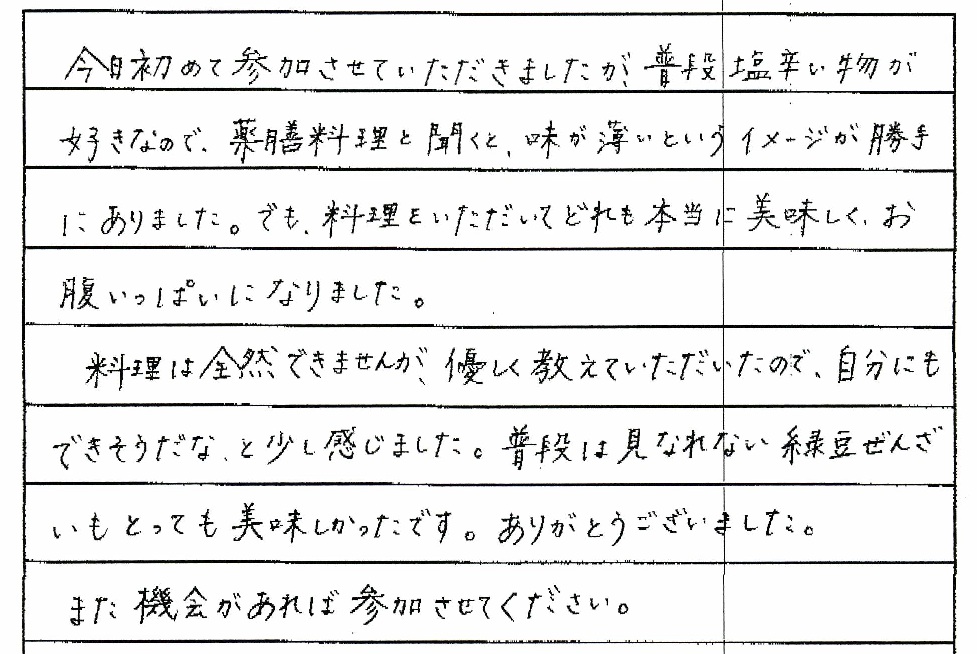 今日初めて参加させていただきましたが、普段塩辛い物が
好きなので、薬膳料理と聞くと、味が薄いというイメージが勝手
にありました。でも、料理をいただいてどれも本当に美味しく、お
腹いっぱいになりました。
料理は全然できませんが、優しく教えていただいたので、自分にも
できそうだな、と少し感じました。普段は見なれない緑豆ぜんざ
いもとっても美味しかったです。ありがとうございました。
また機会があれば参加させてください。